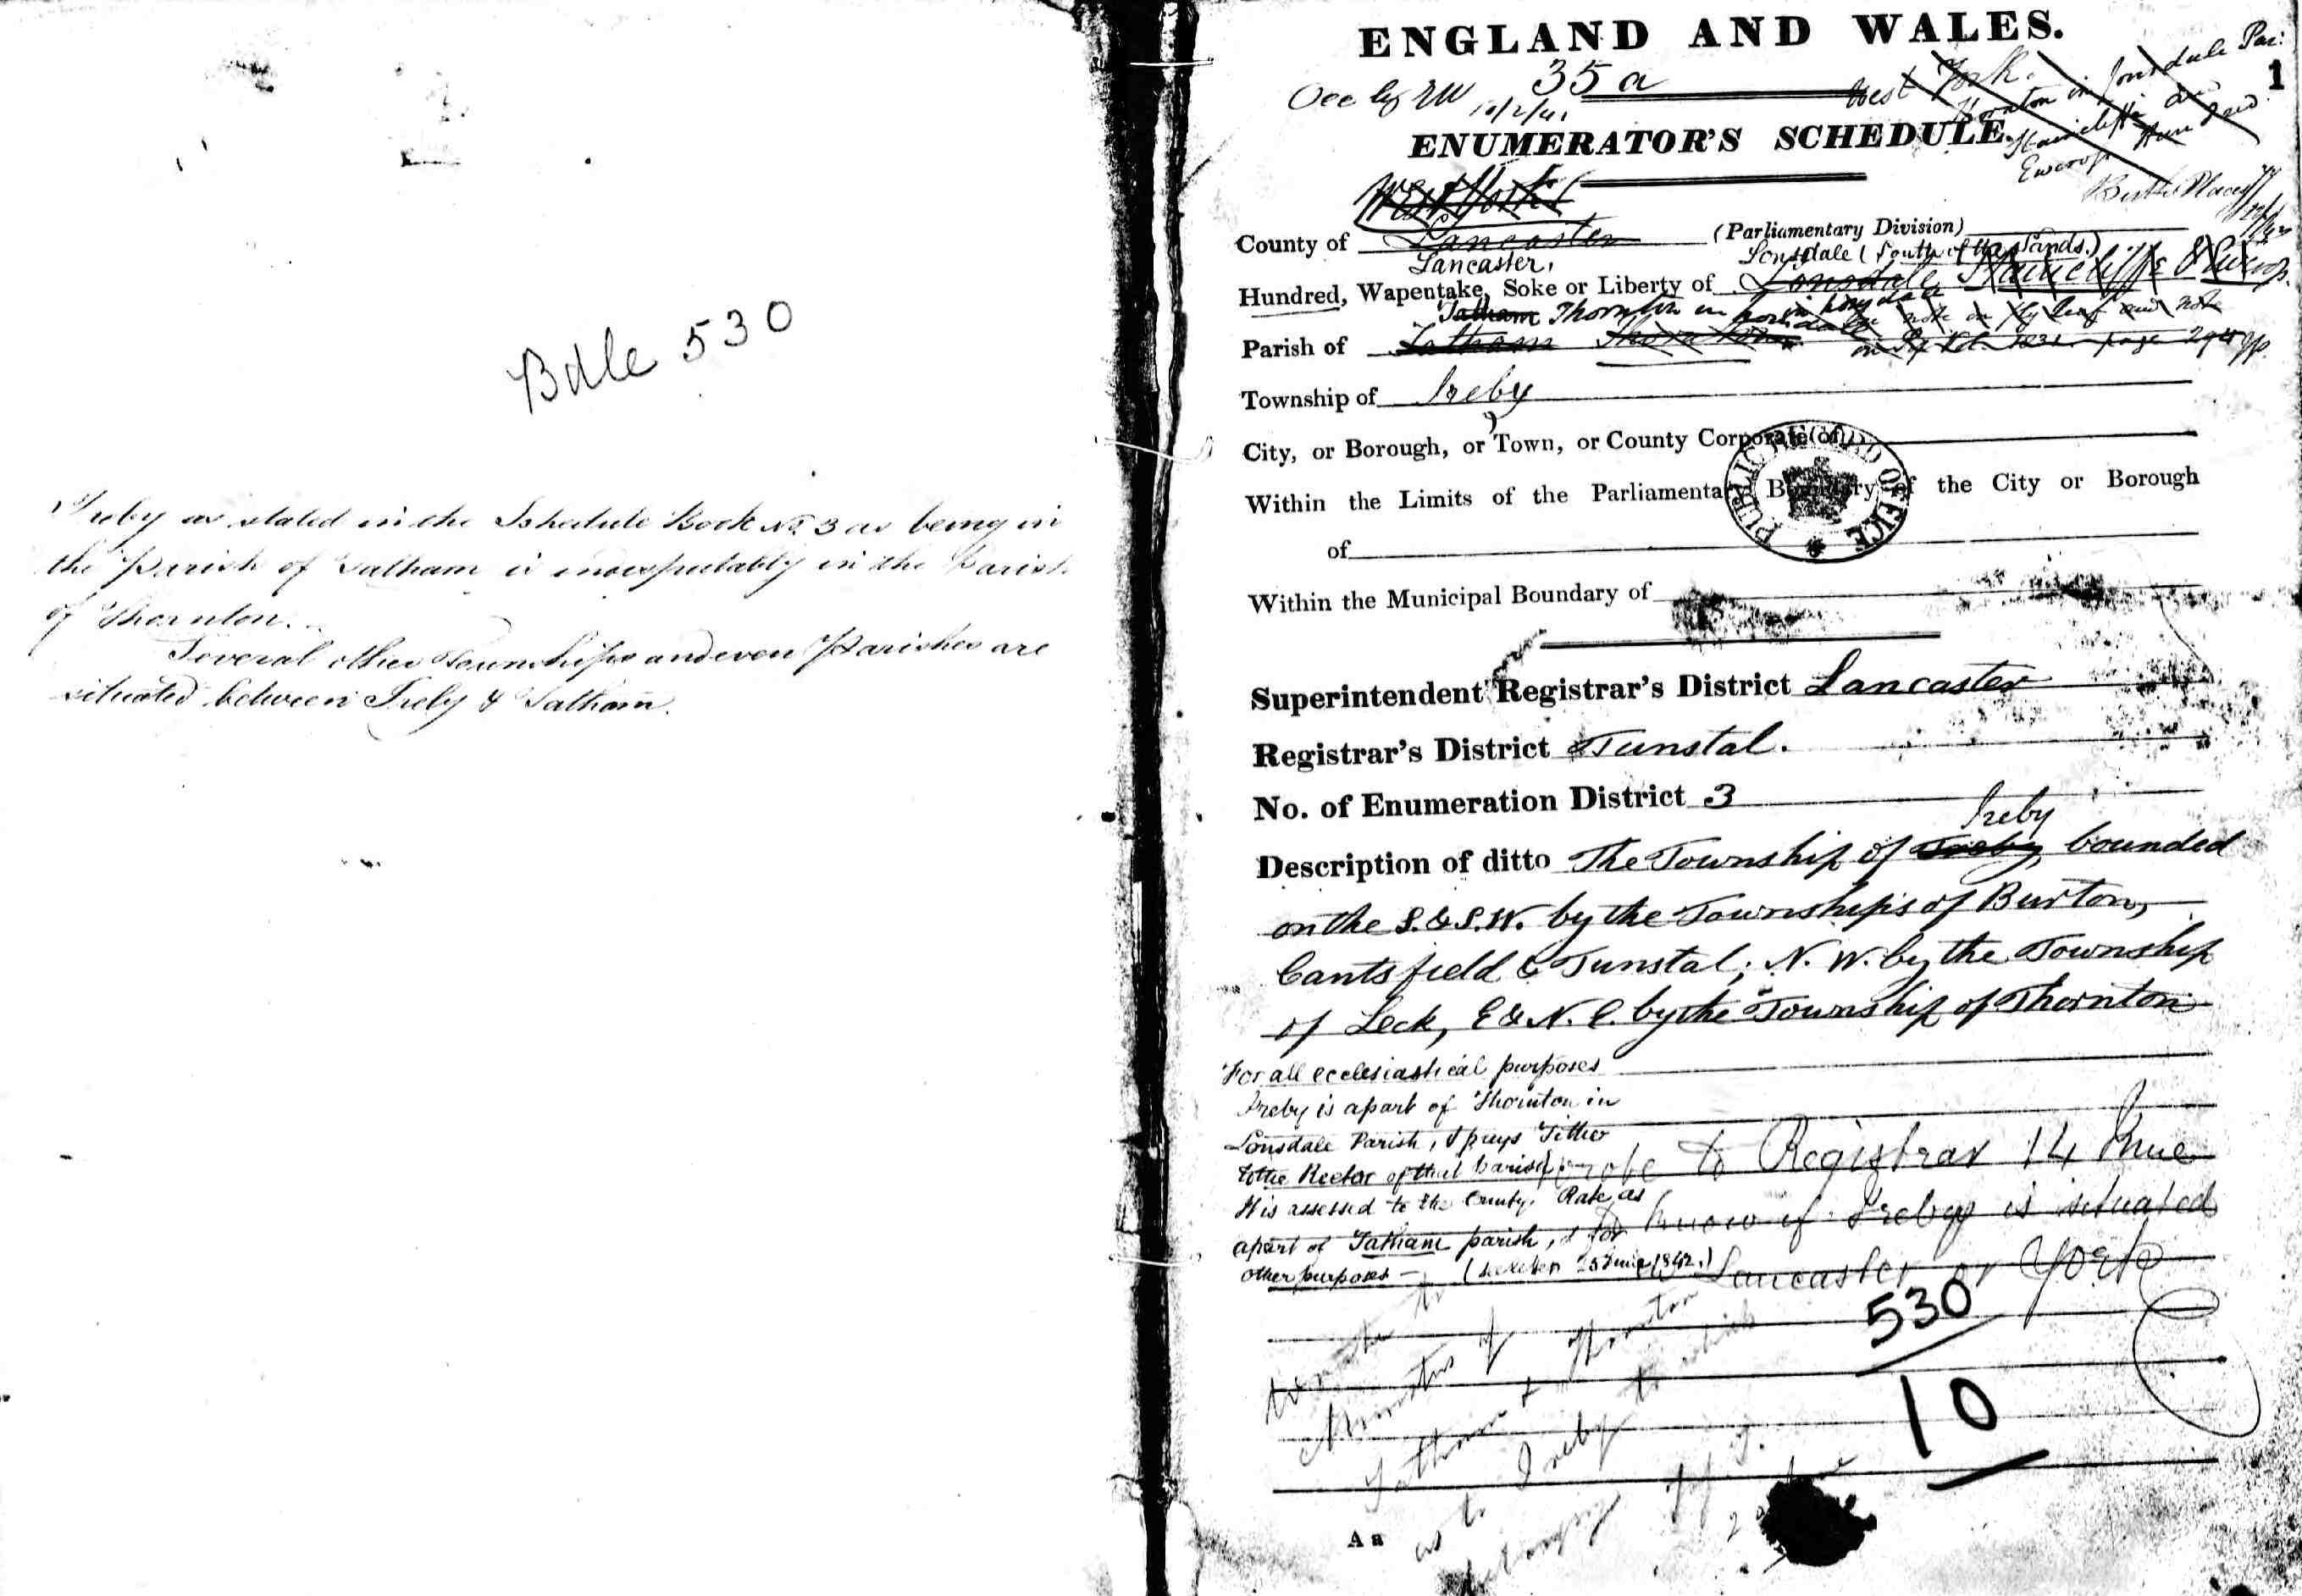 Bdle 530
Ireby as stated in the Schedule Book No. 3 as being in
the Parish of Tatham is indisputably in the Parish
of Thornton.
Several other Townships and even Parishes are
situated between Ireby & Tatham.
ENGLAND AND WALES.
35a
Occ by
West York.
Thornton in Lonsdale Par:
1
Staincliffe and
Ewcross
ENUMERATOR'S SCHEDULE.
Birth Places
West York
County of Lancaster (Parliamentary Division)
Lancaster, Lonsdale (South of the Sands.)
Hundred, Wapentake, Soke or Liberty of Lonsdale Staincliffe & Ewcross
Tatham Thornton in Lonsdale note on fly leaf and note
Parish of Tatham Thornton page
Township of Ireby
City, or Borough, or Town, or County Corporate of
Within the Limits of the Parliamentary Boundary of the City or Borough
of
PUBLIC RECORD OFFICE
Within the Municipal Boundary of
Superintendent Registrar's District Lancaster
Registrar's District Tunstal.
No. of Enumeration District 3
Ireby
Description of ditto The Township of Ireby bounded
on the S. & S.W. by the Townships of Burton,
Cantsfield & Tunstal; N. W. by the Township
of Leck, E & N. E. by the Township of Thornton
For all ecclesiastical purposes
Ireby is a part of Thornton in
Lonsdale Parish, & pays Tithes
to the Rector of that Parish
It is assessed to the County Rate as
apart of Tatham parish, & for
other purposes — 25 June 1842.)
Wrote to Registrar 14 June
to know if Ireby is situated
Lancaster or York
530
10
Wrote to
Minister of
Tatham & Thornton
as to Ireby to which
belongs
Aa